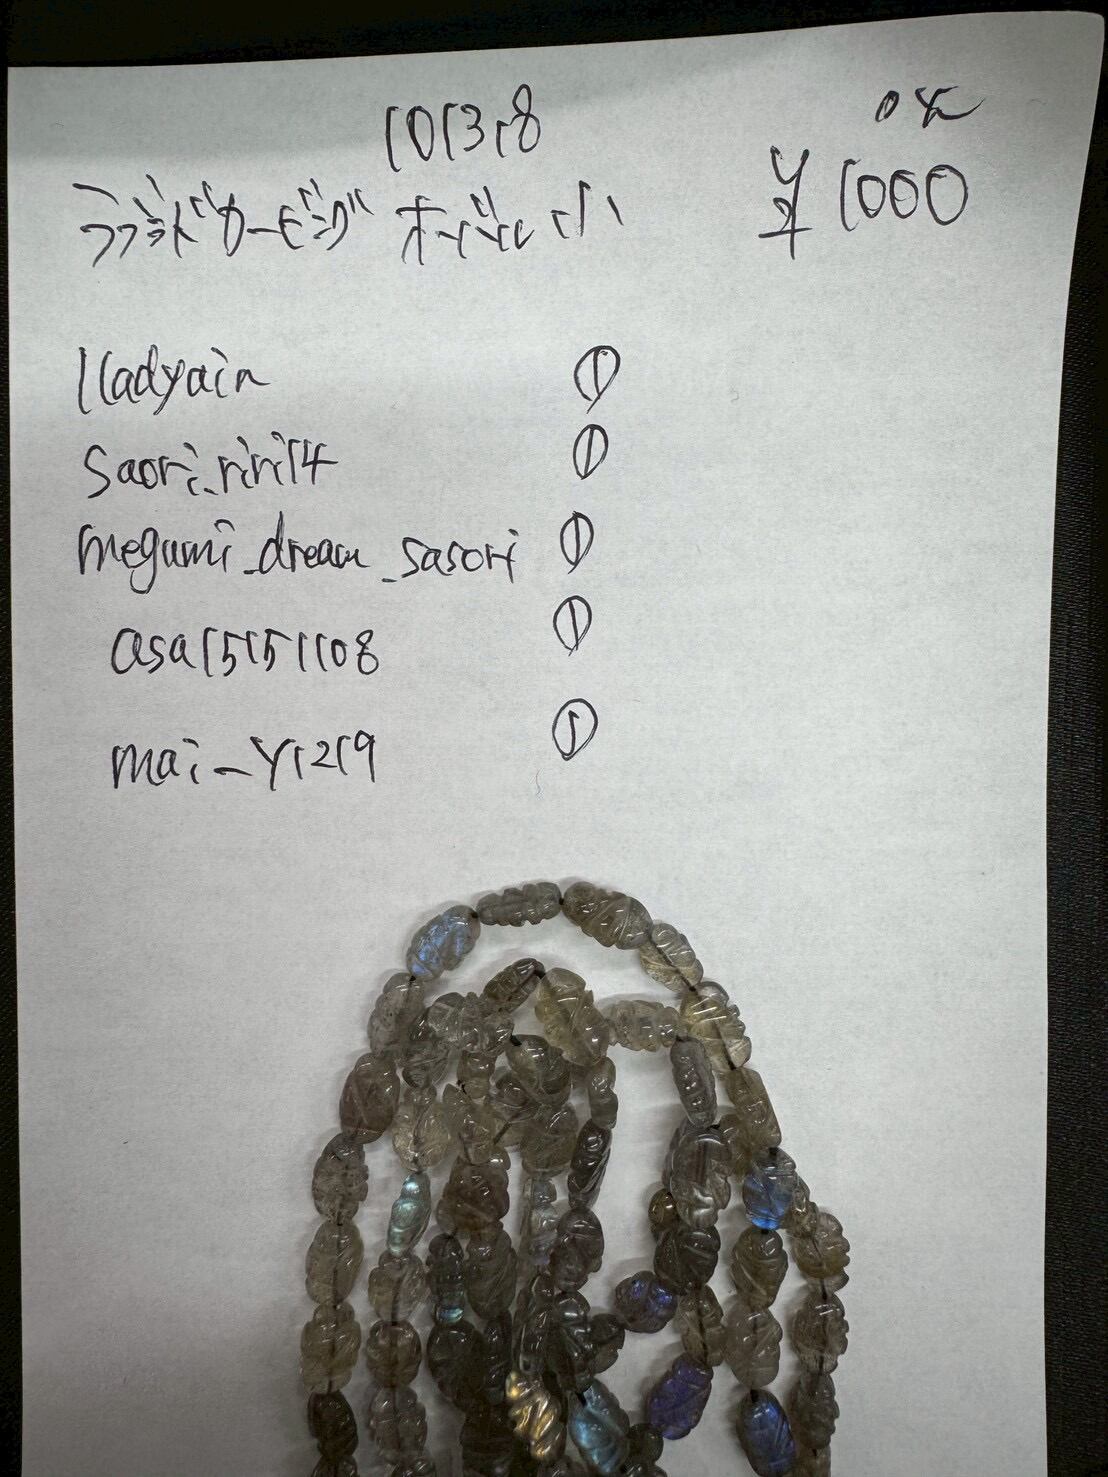 10138
OK
ラブラドカービング オーバル 小
¥1000
lladyain ①
Saori_riri14 ①
megumi_dream_sasori ①
asa15151108 ①
mai_y1219 ①